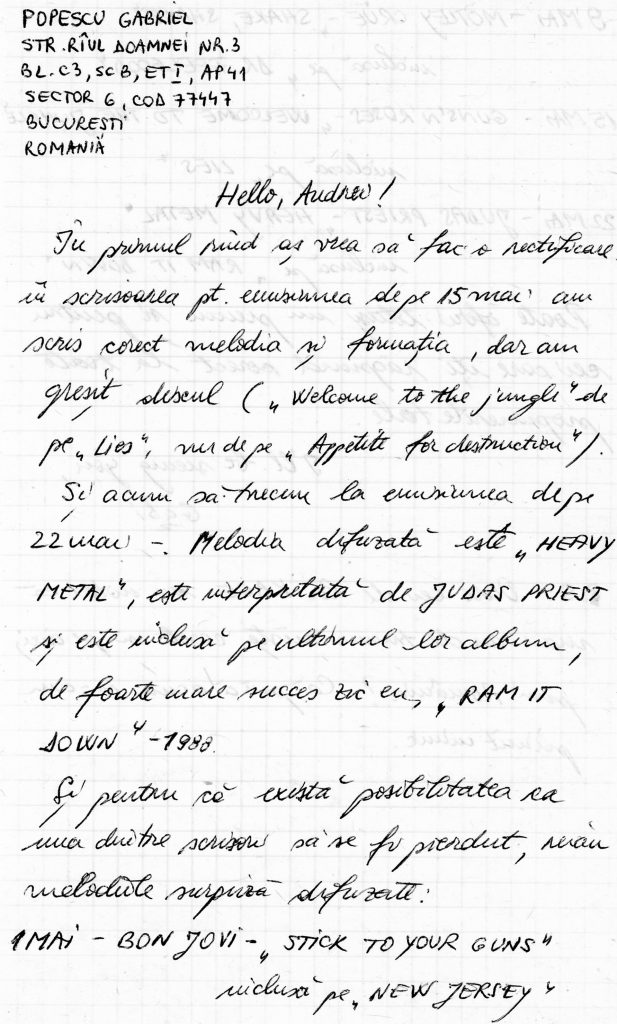 POPESCU GABRIEL
STR. RÎUL DOAMNEI NR.3
BL. C3, SC B, ET I, AP 41
SECTOR 6, COD 77447
BUCUREȘTI
ROMANIA
Hello, Andrei!
În primul rînd aș vrea să fac o rectificare.
în scrisoarea pt. emisiunea de pe 15 mai am
scris corect melodia și formația, dar am
greșit discul („Welcome to the jungle" de
pe „Lies", nu de pe „Appetite for destruction").
Și acum să trecem la emisiunea de pe
22 mai -. Melodia difuzată este „HEAVY
METAL", este interpretată de JUDAS PRIEST
și este inclusă pe ultimul lor album,
de foarte mare succes zic eu, „RAM IT
DOWN" - 1988.
Și pentru că există posibilitatea ca
una dintre scrisori să se fi pierdut, reiau
melodiile surpiză difuzate:
1 MAI - BON JOVI - „STICK TO YOUR GUNS"
inclusă pe „NEW JERSEY"